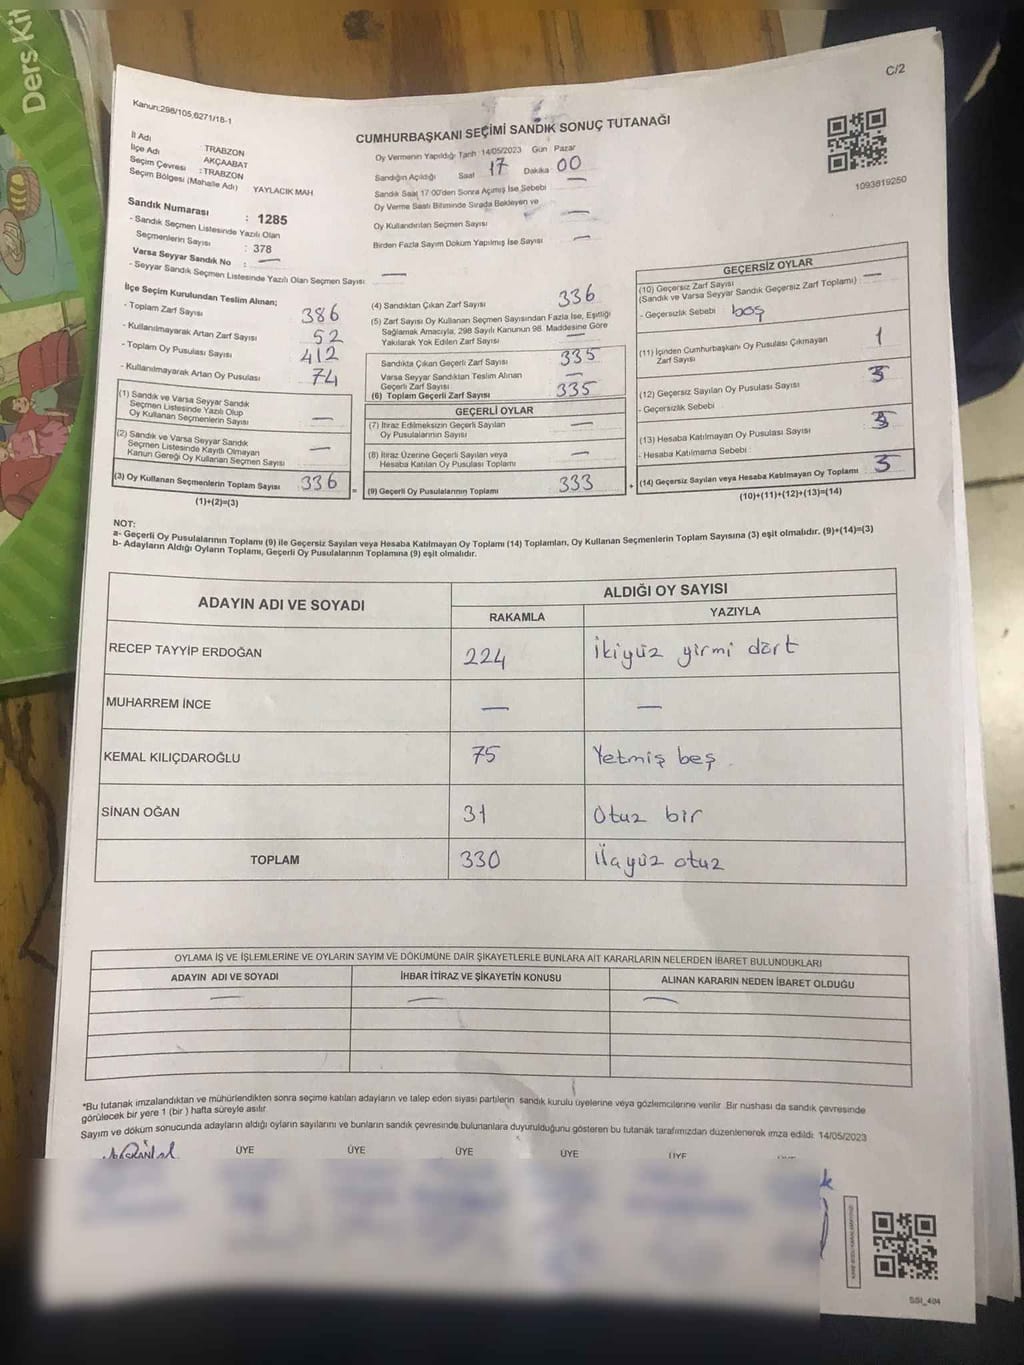 Ders Kit
C/2
Kanun:298/105,6271/18-1
CUMHURBAŞKANI SEÇİMİ SANDIK SONUÇ TUTANAĞI
İl Adı : TRABZON
İlçe Adı AKÇAABAT
Seçim Çevresi : TRABZON
Seçim Bölgesi (Mahalle Adı) YAYLACIK MAH
Sandık Numarası : 1285
- Sandık Seçmen Listesinde Yazılı Olan
Seçmenlerin Sayısı : 378
Varsa Seyyar Sandık No : —
- Seyyar Sandık Seçmen Listesinde Yazılı Olan Seçmen Sayısı: —
Oy Vermenin Yapıldığı Tarih 14/05/2023 Gün Pazar
Sandığın Açıldığı Saat 17 Dakika 00
Sandık Saat 17:00'den Sonra Açılmış İse Sebebi —
Oy Verme Saati Bitiminde Sırada Bekleyen ve
Oy Kullandırılan Seçmen Sayısı —
Birden Fazla Sayım Döküm Yapılmış İse Sayısı —
1093619250
İlçe Seçim Kurulundan Teslim Alınan;
- Toplam Zarf Sayısı 386
- Kullanılmayarak Artan Zarf Sayısı 52
- Toplam Oy Pusulası Sayısı 412
- Kullanılmayarak Artan Oy Pusulası 74
(1) Sandık ve Varsa Seyyar Sandık
Seçmen Listesinde Yazılı Olup
Oy Kullanan Seçmenlerin Sayısı —
(2) Sandık ve Varsa Seyyar Sandık
Seçmen Listesinde Kayıtlı Olmayan
Kanun Gereği Oy Kullanan Seçmen Sayısı —
(3) Oy Kullanan Seçmenlerin Toplam Sayısı 336 =
(1)+(2)=(3)
(4) Sandıktan Çıkan Zarf Sayısı 336
(5) Zarf Sayısı Oy Kullanan Seçmen Sayısından Fazla İse, Eşitliği
Sağlamak Amacıyla, 298 Sayılı Kanunun 98. Maddesine Göre
Yakılarak Yok Edilen Zarf Sayısı —
Sandıkta Çıkan Geçerli Zarf Sayısı 335
Varsa Seyyar Sandıktan Teslim Alınan
Geçerli Zarf Sayısı —
(6) Toplam Geçerli Zarf Sayısı 335
GEÇERLİ OYLAR
(7) İtiraz Edilmeksizin Geçerli Sayılan
Oy Pusulalarının Sayısı —
(8) İtiraz Üzerine Geçerli Sayılan veya
Hesaba Katılan Oy Pusulası Toplamı —
(9) Geçerli Oy Pusulalarının Toplamı 333 +
GEÇERSİZ OYLAR
(10) Geçersiz Zarf Sayısı
(Sandık ve Varsa Seyyar Sandık Geçersiz Zarf Toplamı) : —
- Geçersizlik Sebebi boş
(11) İçinden Cumhurbaşkanı Oy Pusulası Çıkmayan
Zarf Sayısı 1
(12) Geçersiz Sayılan Oy Pusulası Sayısı 3
- Geçersizlik Sebebi :
(13) Hesaba Katılmayan Oy Pusulası Sayısı 3
- Hesaba Katılmama Sebebi :
(14) Geçersiz Sayılan veya Hesaba Katılmayan Oy Toplamı 3
(10)+(11)+(12)+(13)=(14)
NOT:
a- Geçerli Oy Pusulalarının Toplamı (9) ile Geçersiz Sayılan veya Hesaba Katılmayan Oy Toplamı (14) Toplamları, Oy Kullanan Seçmenlerin Toplam Sayısına (3) eşit olmalıdır. (9)+(14)=(3)
b- Adayların Aldığı Oyların Toplamı, Geçerli Oy Pusulalarının Toplamına (9) eşit olmalıdır.
ADAYIN ADI VE SOYADI ALDIĞI OY SAYISI
RAKAMLA YAZIYLA
RECEP TAYYİP ERDOĞAN 224 İkiyüz yirmi dört
MUHARREM İNCE — —
KEMAL KILIÇDAROĞLU 75 Yetmiş beş
SİNAN OĞAN 31 Otuz bir
TOPLAM 330 otuz
OYLAMA İŞ VE İŞLEMLERİNE VE OYLARIN SAYIM VE DÖKÜMÜNE DAİR ŞİKAYETLERLE BUNLARA AİT KARARLARIN NELERDEN İBARET BULUNDUKLARI
ADAYIN ADI VE SOYADI İHBAR İTİRAZ VE ŞİKAYETİN KONUSU ALINAN KARARIN NEDEN İBARET OLDUĞU
— — —
*Bu tutanak imzalandıktan ve mühürlendikten sonra seçime katılan adayların ve talep eden siyasi partilerin sandık kurulu üyelerine veya gözlemcilerine verilir. Bir nüshası da sandık çevresinde
görülecek bir yere 1 (bir) hafta süreyle asılır.
Sayım ve döküm sonucunda adayların aldığı oyların sayılarını ve bunların sandık çevresinde bulunanlara duyurulduğunu gösteren bu tutanak tarafımızdan düzenlenerek imza edildi. 14/05/2023
ÜYE ÜYE ÜYE ÜYE ÜYE
SSI_404